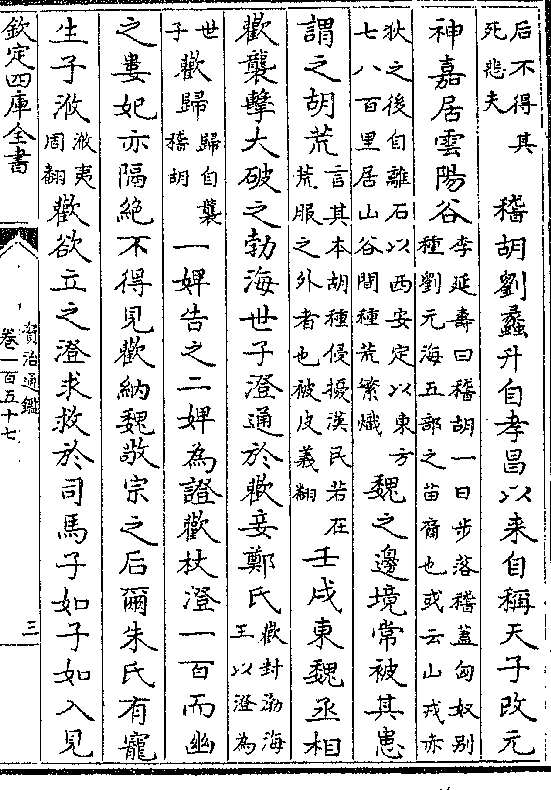 后不得其死悲夫 稽胡劉蠡升自孝昌以来自稱天子改元
神嘉居雲陽谷李延壽曰稽胡一曰步落稽蓋匈奴别種劉元海五部之苗裔也或云山戎赤
狄之後自離石以西安定以東方七八百里居山谷間種荒繁熾魏之邊境常被其患
謂之胡荒言其本胡種侵擾漢民若在荒服之外者也被皮義翻 壬戌東魏丞相
歡襲擊大破之勃海世子澄通於歡妾鄭氏歡封勃海王以澄為
世子歡歸歸自襲稽胡一婢告之二婢為證歡杖澄一百而幽
之婁妃亦隔絶不得見歡納魏敬宗之后爾朱氏有寵
生子浟浟夷周翻歡欲立之澄求救於司馬子如子如入見
欽定四庫全書
資治通鑑
卷一百五十七
三